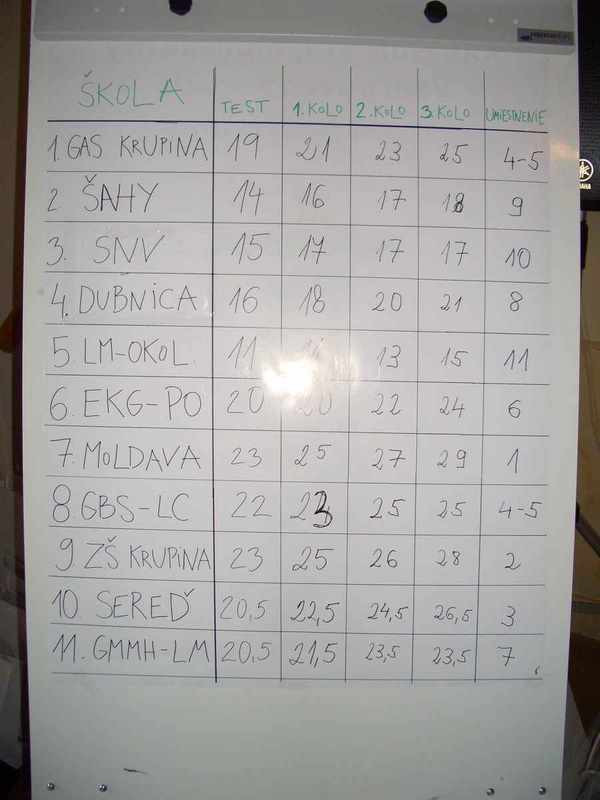 ŠKOLA TEST 1. KOLO 2. KOLO 3. KOLO UMIESTNENIE
1. GAS KRUPINA 19 21 23 25 4-5
2 ŠAHY 14 16 17 18 9
3. SNV 15 17 17 17 10
4. DUBNICA 16 18 20 21 8
5. LM-OKOL. 11 13 15 11
6. EKG-PO 20 20 22 24 6
7. MOLDAVA 23 25 27 29 1
8. GBS-LC 22 23 25 25 4-5
9 ZŠ KRUPINA 23 25 26 28 2
10 SEREĎ 20,5 22,5 24,5 26,5 3
11. GMMH-LM 20,5 21,5 23,5 23,5 7
YAMAHA